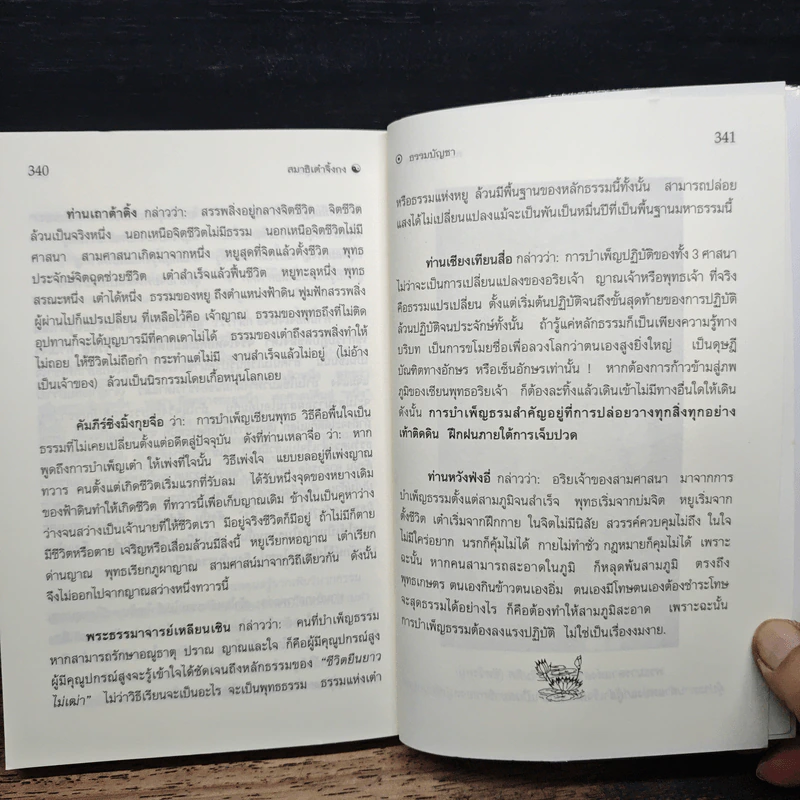 340
สมาธิเต๋าจิ้งกง
ท่านเถาต้าติ้ง กล่าวว่า: สรรพสิ่งอยู่กลางจิตชีวิต จิตชีวิต
ล้วนเป็นจริงหนึ่ง นอกเหนือจิตชีวิตไม่มีธรรม นอกเหนือจิตชีวิตไม่มี
ศาสนา สามศาสนาเกิดมาจากหนึ่ง หยูสุดที่จิตแล้วตั้งชีวิต พุทธ
ประจักษ์จิตฉุดช่วยชีวิต เต๋าสำเร็จแล้วฟื้นชีวิต หยูทะลุหนึ่ง พุทธ
สรณะหนึ่ง เต๋าได้หนึ่ง ธรรมของหยู ถึงตำแหน่งฟ้าดิน พูมฟักสรรพสิ่ง
ผู้ผ่านไปก็แปรเปลี่ยน ที่เหลือไว้คือ เจ้าญาณ ธรรมของพุทธถึงที่ไม่ติด
อุปทานก็จะได้บุญบารมีที่คาดเดาไม่ได้ ธรรมของเต๋าถึงสรรพสิ่งทำให้
ไม่ถอย ให้ชีวิตไม่ถือกำ กระทำแต่ไม่มี งานสำเร็จแล้วไม่อยู่ (ไม่อ้าง
เป็นเจ้าของ) ล้วนเป็นนิรกรรมโดยเกื้อหนุนโลกเอย
คัมภีร์ซิ่งมิ้งกุยจื่อ ว่า: การบำเพ็ญเซียนพุทธ วิธีคือพื้นใจเป็น
ธรรมที่ไม่เคยเปลี่ยนตั้งแต่อดีตสู่ปัจจุบัน ดังที่ท่านเหลาจื่อ ว่า: หาก
พูดถึงการบำเพ็ญเต๋า ให้เพ่งที่ใจนั้น วิธีเพ่งใจ แยบยลอยู่ที่เพ่งญาณ
ทวาร คนตั้งแต่เกิดชีวิตเริ่มแรกที่รับลม ได้รับหนึ่งจุดของหยางเดิม
ของฟ้าดินทำให้เกิดชีวิต ที่ทวารนี้เพื่อเก็บญาณเดิม ข้างในเป็นคูหาว่าง
ว่างจนสว่างเป็นเจ้านายที่ให้ชีวิตเรา มีอยู่จริงชีวิตก็มีอยู่ ถ้าไม่มีก็ตาย
มีชีวิตหรือตาย เจริญหรือเสื่อมล้วนมีสิ่งนี้ หยูเรียกหอญาณ เต๋าเรียก
ด่านญาณ พุทธเรียกภูผาญาณ สามศาสน์มาจากวิถีเดียวกัน ดังนั้น
จึงไม่ออกไปจากญาณสว่างหนึ่งทวารนี้
พระธรรมาจารย์เหลียนเซิน กล่าวว่า: คนที่บำเพ็ญธรรม
หากสามารถรักษาอณูธาตุ ปราณ ญาณและใจ ก็คือผู้มีคุณูปกรณ์สูง
ผู้มีคุณูปกรณ์สูงจะรู้เข้าใจได้ชัดเจนถึงหลักธรรมของ “ชีวิตยืนยาว
ไม่เฒ่า” ไม่ว่าวิธีเรียนจะเป็นอะไร จะเป็นพุทธธรรม ธรรมแห่งเต๋า
341
ธรรมบัญชา
หรือธรรมแห่งหยู ล้วนมีพื้นฐานของหลักธรรมนี้ทั้งนั้น สามารถปล่อย
แสงได้ไม่เปลี่ยนแปลงแม้จะเป็นพันเป็นหมื่นปีที่เป็นพื้นฐานมหาธรรมนี้
ท่านเซียงเทียนสื่อ กล่าวว่า: การบำเพ็ญปฏิบัติของทั้ง 3 ศาสนา
ไม่ว่าจะเป็นการเปลี่ยนแปลงของอริยเจ้า ญาณเจ้าหรือพุทธเจ้า ที่จริง
คือธรรมแปรเปลี่ยน ตั้งแต่เริ่มต้นปฏิบัติจนถึงขั้นสุดท้ายของการปฏิบัติ
ล้วนปฏิบัติจนประจักษ์ทั้งนั้น ถ้ารู้แค่หลักธรรมก็เป็นเพียงความรู้ทาง
บริบท เป็นการขโมยชื่อเพื่อลวงโลกว่าตนเองสูงยิ่งใหญ่ เป็นดุษฎี
บัณฑิตทางอักษร หรือเซ็นอักษรเท่านั้น ! หากต้องการก้าวข้ามสู่ภพ
ภูมิของเซียนพุทธอริยเจ้า ก็ต้องละทิ้งแล้วเดินเข้าไม่มีทางอื่นใดให้เดิน
ดังนั้น การบำเพ็ญธรรมสำคัญอยู่ที่การปล่อยวางทุกสิ่งทุกอย่าง
เท้าติดดิน ฝึกฝนภายใต้การเจ็บปวด
ท่านหวังฟงอี่ กล่าวว่า: อริยเจ้าของสามศาสนา มาจากการ
บำเพ็ญธรรมตั้งแต่สามภูมิจนสำเร็จ พุทธเริ่มจากบ่มจิต หยูเริ่มจาก
ตั้งชีวิต เต๋าเริ่มจากฝึกกาย ในจิตไม่มีนิสัย สวรรค์ควบคุมไม่ถึง ในใจ
ไม่มีใคร่อยาก นรกก็คุ้มไม่ได้ กายไม่ทำชั่ว กฎหมายก็คุมไม่ได้ เพราะ
ฉะนั้น หากคนสามารถสะอาดในภูมิ ก็หลุดพ้นสามภูมิ ตรงถึง
พุทธเกษตร ตนเองกินข้าวตนเองอิ่ม ตนเองมีโทษตนเองต้องชำระโทษ
จะสุดธรรมได้อย่างไร ก็คือต้องทำให้สามภูมิสะอาด เพราะฉะนั้น
การบำเพ็ญธรรมต้องลงแรงปฏิบัติ ไม่ใช่เป็นเรื่องงมงาย.